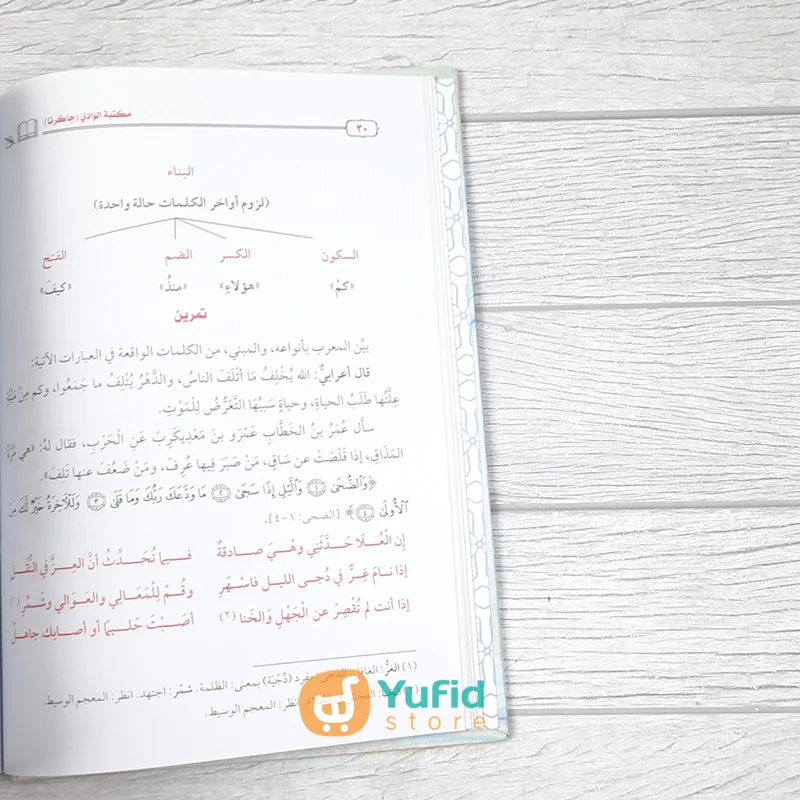 مكتبة الوادي (جاكرتا)
٢٠
البناء
(لزوم أواخر الكلمات حالة واحدة)
السكون الكسر الضم الفتح
«كمْ» «هؤلاءِ» «منذُ» «كيفَ»
تمرين
بيِّن المعرب بأنواعه، والمبني، من الكلمات الواقعة في العبارات الآتية:
قال أعرابيٌّ: الله يُخْلِفُ مَا أَتْلَفَ الناسُ، والدَّهْرُ يُتْلِفُ ما جَمَعُوا، وكم مِنْ
عِلَّتُها طَلَبُ الحياةِ، وحياةٍ سَبَبُهَا التَّعَرُّضُ لِلْمَوْتِ.
سأل عُمَرُ بنُ الخَطَّابِ عَمْرَو بنَ مَعْدِيكَرِبَ عَنِ الْحَرْبِ، فقال لهُ: «هي مُرَّةُ
المَذَاقِ، إذا قَلَصَتْ عن ساقٍ، مَنْ صَبَرَ فِيها عُرِفَ، ومَنْ ضَعُفَ عنها تَلِفَ».
﴿وَٱلضُّحَىٰ ١ وَٱلَّيْلِ إِذَا سَجَىٰ ٢ مَا وَدَّعَكَ رَبُّكَ وَمَا قَلَىٰ ٣ وَلَلْآخِرَةُ خَيْرٌ لَّكَ مِنَ
ٱلْأُولَىٰ ٤﴾ [الضحى: ١-٤].
إن الْعُلَا حَدَّثَتْني وهْيَ صـادقةٌ فـيمـا تُحَـدِّثُ أنَّ العِـزَّ في النُّقَلِ
إذا نـامَ غِـرٌّ في دُجـى الليـل فاسْـهَرِ وقُـمْ لِلْمَعَـالي والعَـوالي وشَـمِّرِ (١)
إذا أنت لم تُقْصِرْ عن الْجَهْلِ والخَنا (٢) أصَبْـتَ حَلـيمًا أو أصابـك جاهـلُ
(١) الغِرُّ: الغافل. الدجى: مفرد (دُجْيَة) بمعنى: الظلمة. شمّر: اجتهد. انظر: المعجم الوسيط.
انظر: المعجم الوسيط.
Yufid
store